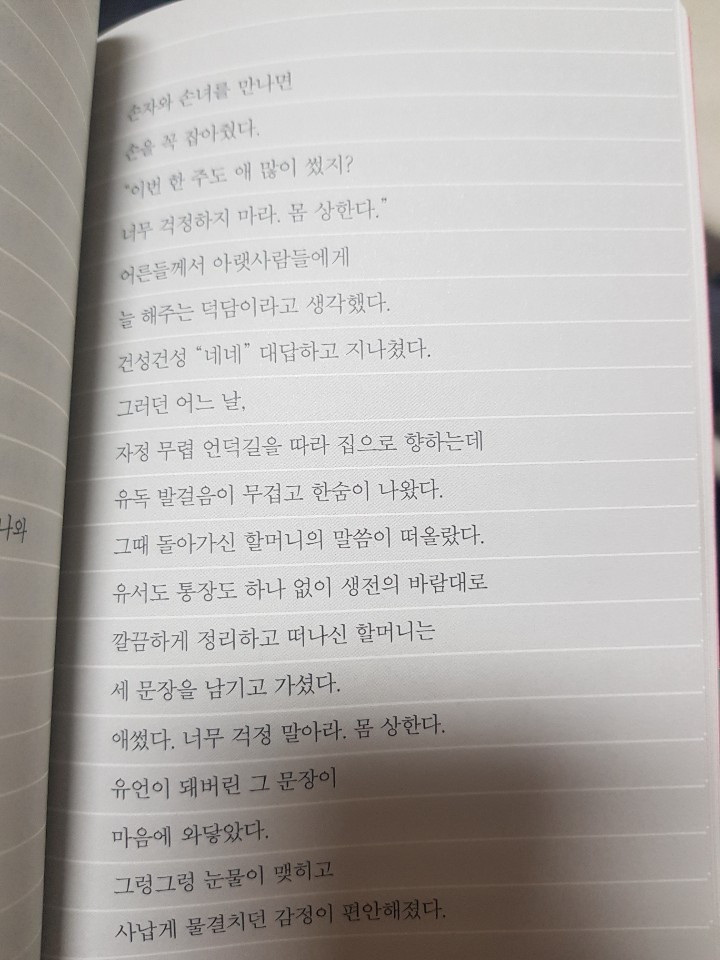 나와
손자와 손녀를 만나면
손을 꼭 잡아줬다.
“이번 한 주도 애 많이 썼지?
너무 걱정하지 마라. 몸 상한다.”
어른들께서 아랫사람들에게
늘 해주는 덕담이라고 생각했다.
건성건성 “네네” 대답하고 지나쳤다.
그러던 어느 날,
자정 무렵 언덕길을 따라 집으로 향하는데
유독 발걸음이 무겁고 한숨이 나왔다.
그때 돌아가신 할머니의 말씀이 떠올랐다.
유서도 통장도 하나 없이 생전의 바람대로
깔끔하게 정리하고 떠나신 할머니는
세 문장을 남기고 가셨다.
애썼다. 너무 걱정 말아라. 몸 상한다.
유언이 돼버린 그 문장이
마음에 와닿았다.
그렁그렁 눈물이 맺히고
사납게 물결치던 감정이 편안해졌다.